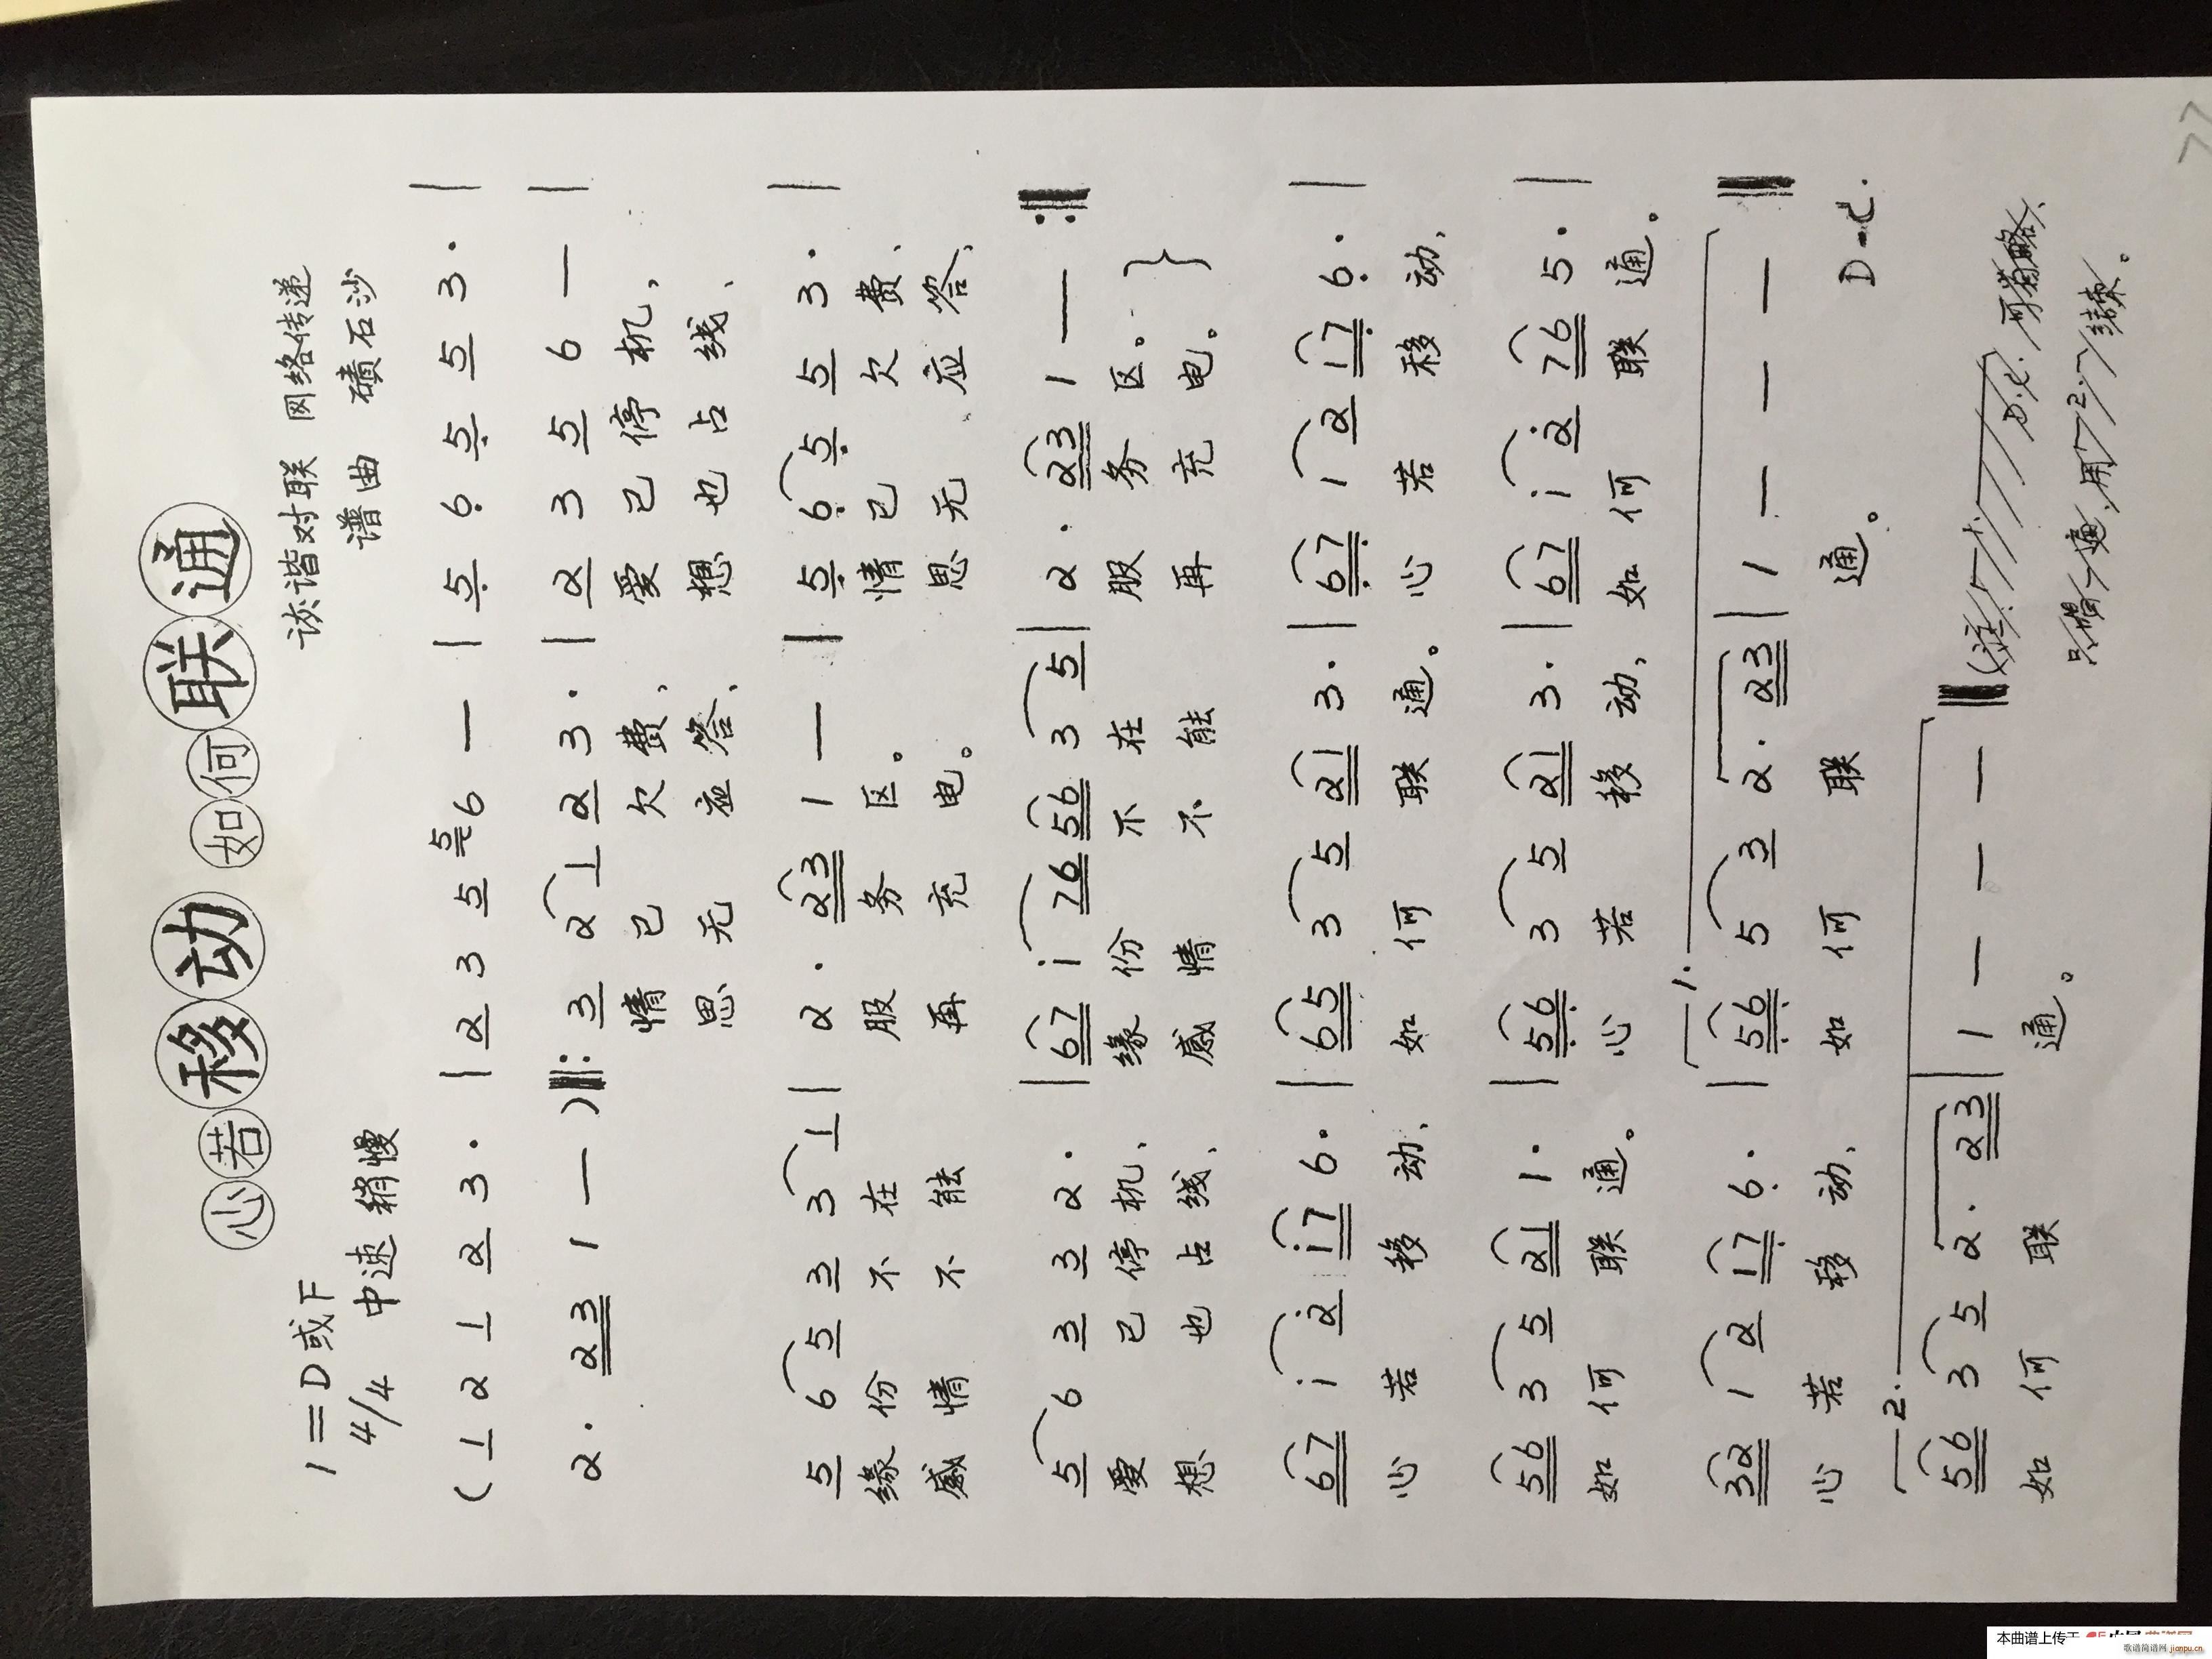 心若移动 如何联通
1=D或F
诙谐对联 网络传递
4/4 中速 稍慢
谱曲 碛石沙
(1 2 1 2 3· | 2 3 5 5 6 — | 5 6 5 5 3· |
2· 23 1 — )‖: 3 2 1 2 3· | 2 3 5 6 — |
情已欠费、爱已停机,
思无应答、想也占线、
5 6 5 3 3 1 | 2· 23 1 — | 5 6 5 5 3·
缘份不在服务区。情已欠费、
感情不能再充电。思无应答、
5 6 3 3 2· | 67 i 76 56 3 5 | 2· 23 1 — :‖
爱已停机、缘份不在服务区。}
想也占线、感情不能再充电。
67 i 2 i7 6· | 65 3 5 21 3· | 67 1 2 17 6· |
心若移动、如何联通。心若移动、
56 3 5 21 1· | 56 3 5 21 3· | 67 i 2 76 5· |
如何联通。心若移动,如何联通。
1.
32 1 2 17 6· | 56 5 3 2· 23 | 1 — — — ‖
心若移动、如何联通。 D.C.
2.
56 3 5 2· 23 | 1 — — — ‖
如何联通。
只唱一遍,用2.结束。
77
本曲谱上传于
歌谱简谱网 jianpu.cn